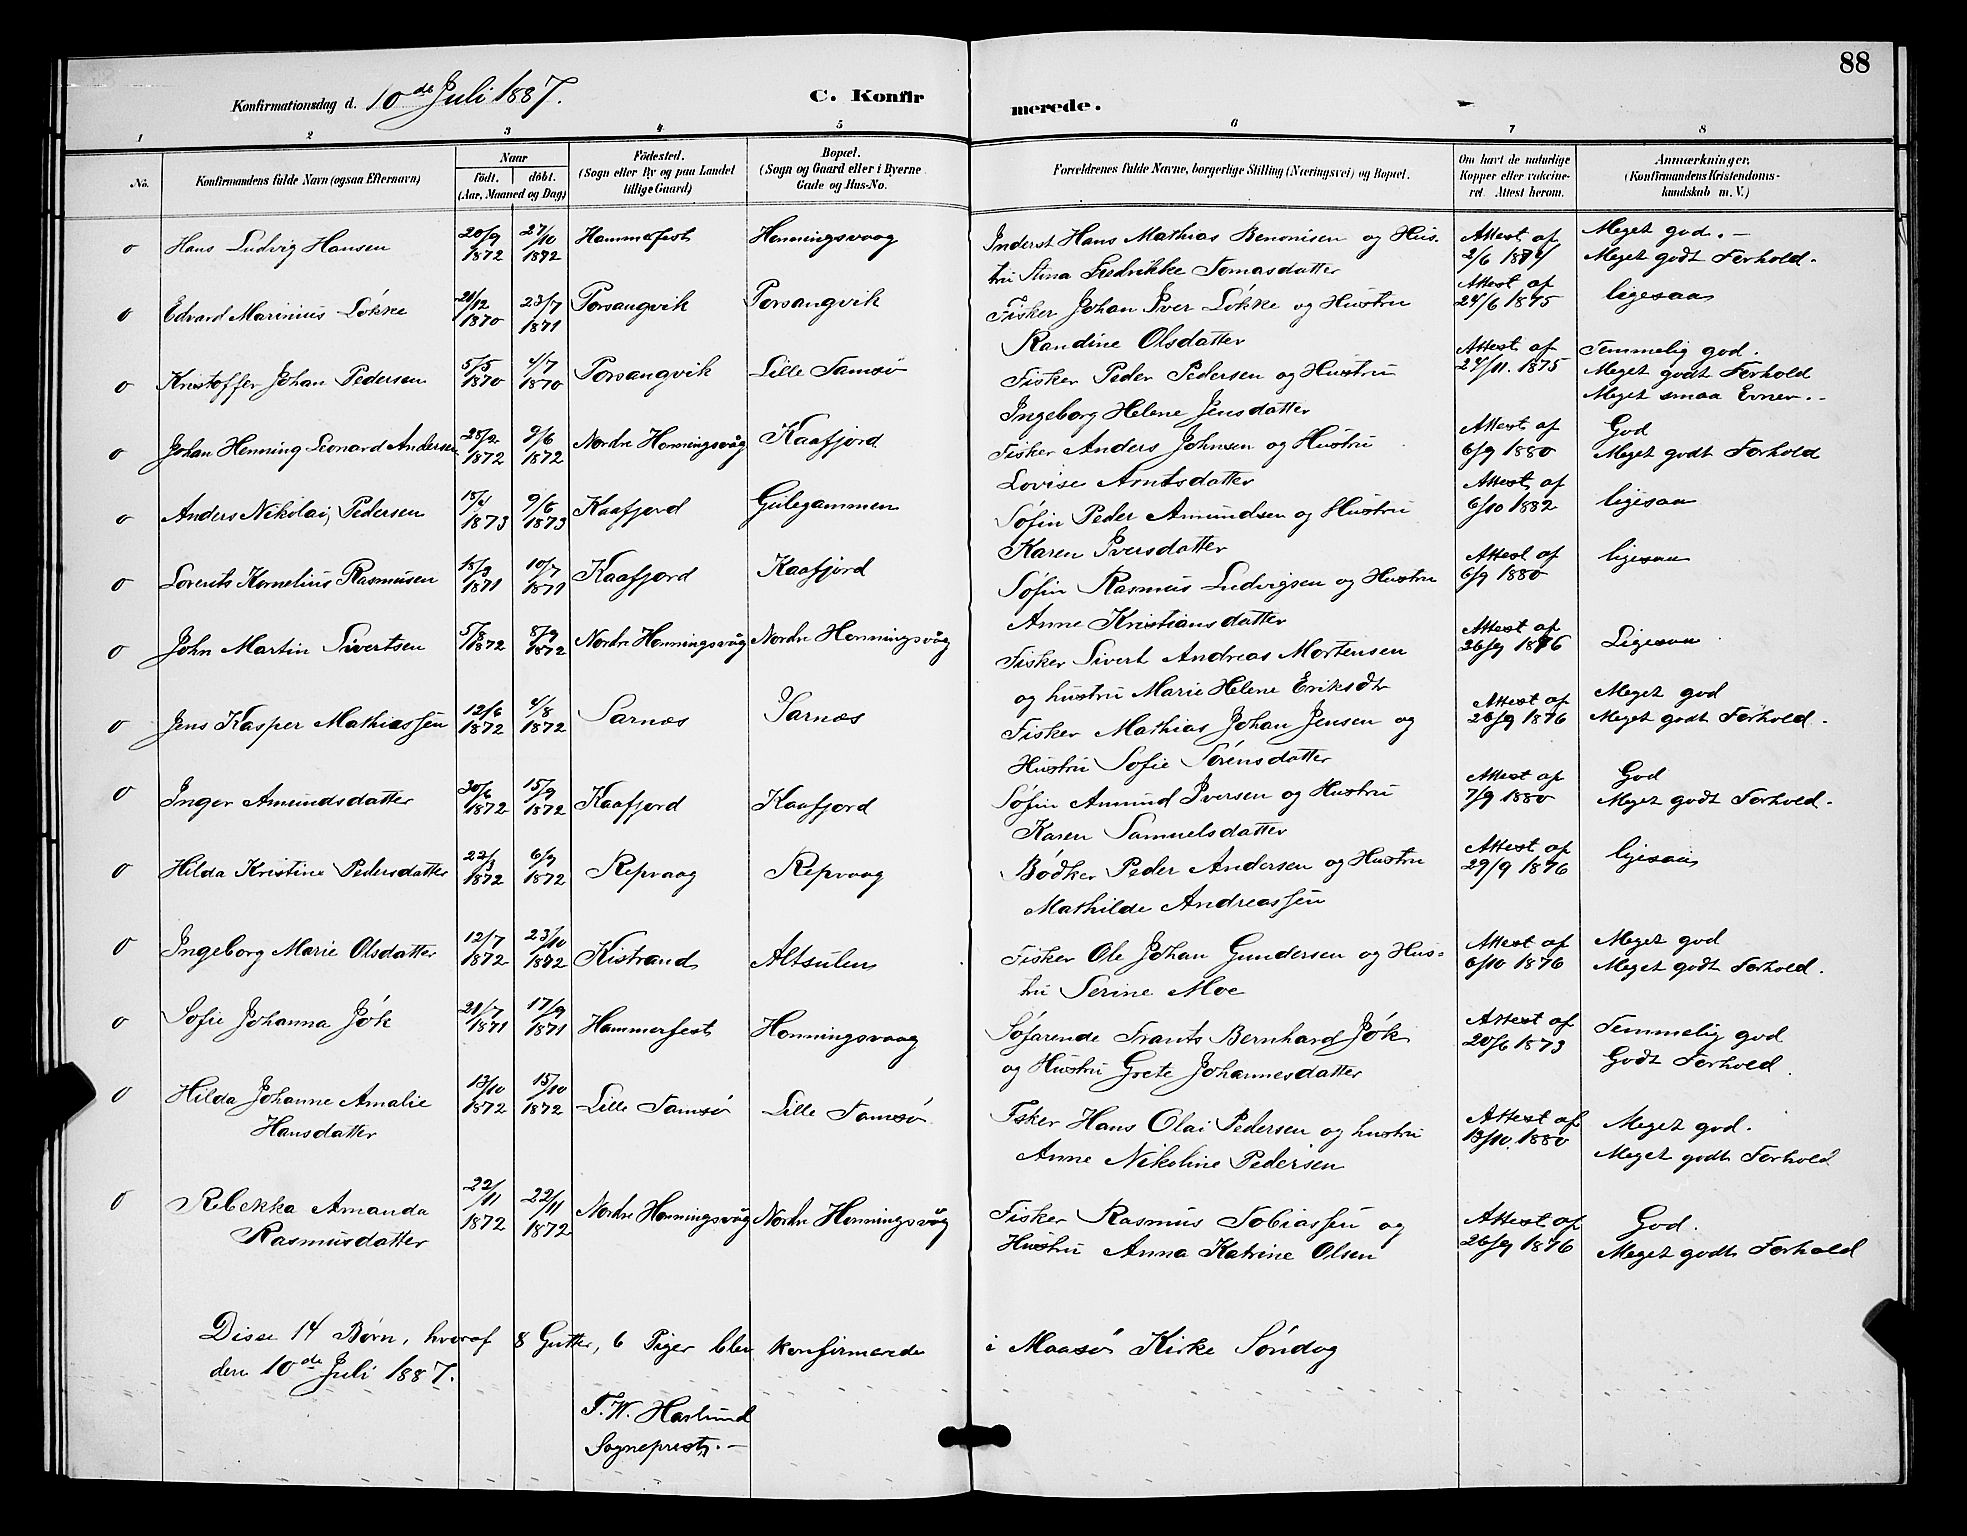 88
Konfirmationsdag d. 10de Juli 1887.
C. Konfirmerede.
1 2 3 4 5 6 7 8
No.
Konfirmandens fulde Navn (ogsaa Efternavn)
Naar
födt. döbt.
(Aar, Maaned og Dag)
Födested.
(Sogn eller By og paa Landet
tillige Gaard)
Bopæl.
(Sogn og Gaard eller i Byerne
Gade og Hus-No.
Forældrenes fulde Navne, borgerlige Stilling (Næringsvei) og Bopæl.
Om havt de naturlige
Kopper eller vakcine-
ret. Attest herom.
Anmærkninger.
(Konfirmandens Kristendoms-
kundskab m. V.)
o Hans Ludvig Hansen 20/9 1872 27/10 1872 Hammerfest Honningsvaag Inderst Hans Mathias Benonisen og Hus- Attest af Meget god. -
tru Stina Fredrikke Tomasdatter 2/6 Meget godt Forhold.
o Edvard Marinius Løkke 21/12 1870 23/7 1871 Porsangvik Porsangvik Fisker Johan Iver Løkke og Hustru Attest af 24/6 1875 ligesaa
Randine Olsdatter
o Kristoffer Johan Pedersen 5/5 1870 4/7 1870 Porsangvik Lille Tamsø Fisker Peder Pedersen og Hustru Attest af 24/11. 1875 Temmelig god.
Meget godt Forhold
Ingeborg Helene Jensdatter Meget smaa Evner. -
o Johan Henning Leonard Andersen 1872 9/6 1872 Nordre Honningsvåg Kaafjord Fisker Anders Johnsen og Hustru Attest af 6/9 1880 God
Meget godt Forhold
Lovise Arntsdatter
o Anders Nikolai Pedersen 1873 9/6 1873 Kaafjord Gulegammen Søfin Peder Amundsen og Hustru Attest af 6/10 1882 ligesaa
Karen Iversdatter
o Loverits Kornelius Rasmusen 18/3 1871 10/7 1871 Kaafjord Kaafjord Søfin Rasmus Ludvigsen og Hustru Attest af 6/9 1880 ligesaa
Anne Kristiansdatter
o John Martin Sivertsen 5/8 1872 8/9 1872 Nordre Honningsvåg Nordre Honningsvåg Fisker Sivert Andreas Mortensen Attest af 26/9 1876 Ligesaa
og hustru Marie Helene Eriksdtr
o Jens Kasper Mathiassen 12/6 1872 4/8 1872 Sarnæs Sarnæs Fisker Mathias Johan Jensen og Attest af 26/9 1876 Meget god
Meget godt Forhold.
Hustru Sofie Sørensdatter
o Inger Amundsdatter 30/6 1872 15/9 1872 Kaafjord Kaafjord Søfin Amund Iversen og Hustru Attest af 7/9 1880 God
Meget godt Forhold.
Karen Samuelsdatter
o Hilda Kristine Pedersdatter 22/3 1872 6/9 1872 Repvaag Repvaag Bødker Peder Andersen og Hustru Attest af 29/9 1876 ligesaa
Mathilde Andreassen
o Ingeborg Marie Olsdatter 12/7 1872 23/10 1872 Kistrand Altsulen Fisker Ole Johan Gundersen og Hus- Attest af 6/10 1876 Meget god
Meget godt Forhold.
tru Serine Moe
o Sofie Johanna Jök 21/7 1871 17/9 1871 Hammerfest Honningsvaag Søfarende Frants Bernhard Jök Attest af 20/6 1873 Temmelig god
og Hustru Grete Johannesdatter Godt Forhold.
o Hilda Johanne Amalie 13/10 1872 15/10 1872 Lille Tamsø Lille Tamsø. Fsker Hans Olai Pedersen og hustru Attest af 13/10. 1880 Meget god.
Hansdatter Anne Nikoline Pedersen Meget godt Forhold
o Rebekka Amanda 22/11 1872 22/11 1872 Nordre Honningsvåg Nordre Honningsvåg Fisker Rasmus Tobiassen og Attest af God.
Rasmusdatter Hustru Anna Katrine Olsen 26/9 1876 Meget godt Forhold
Disse 14 Børn, hvoraf 8 Gutter, 6 Piger blev konfirmerede i Maasø Kirke Søndag
den 10de Juli 1887.
F. W. Haslund
Sogneprest. -